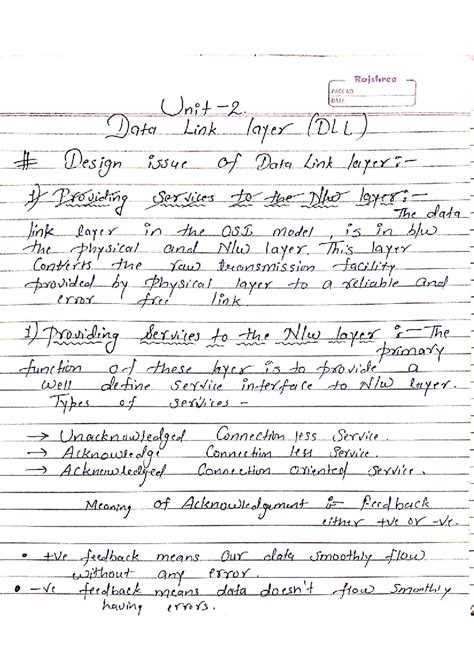 Rajshree
PAGE NO.
DATE
Unit-2.
Data Link layer (DLL)
# Design issue of Data Link layer:-
1) Providing Services to the N/w layer:-
The data
link layer in the OSI model, is in b/w
the physical and N/w layer. This layer
Converts the raw transmission facility
provided by Physical layer to a reliable and
error free link
1) Providing Services to the N/w layer :- The
primary
function of these layer is to provide a
well define service interface to N/w layer.
Types of services -
→ Unacknowledged Connection less Service.
→ Acknowledge Connection less Service.
→ Acknowledged Connection oriented Service.
Meaning of Acknowledgement :- Feedback
either +ve or -ve.
• +ve feedback means our data smoothly flow
without any error.
• -ve feedback means data doesn't flow smoothly
having errors.